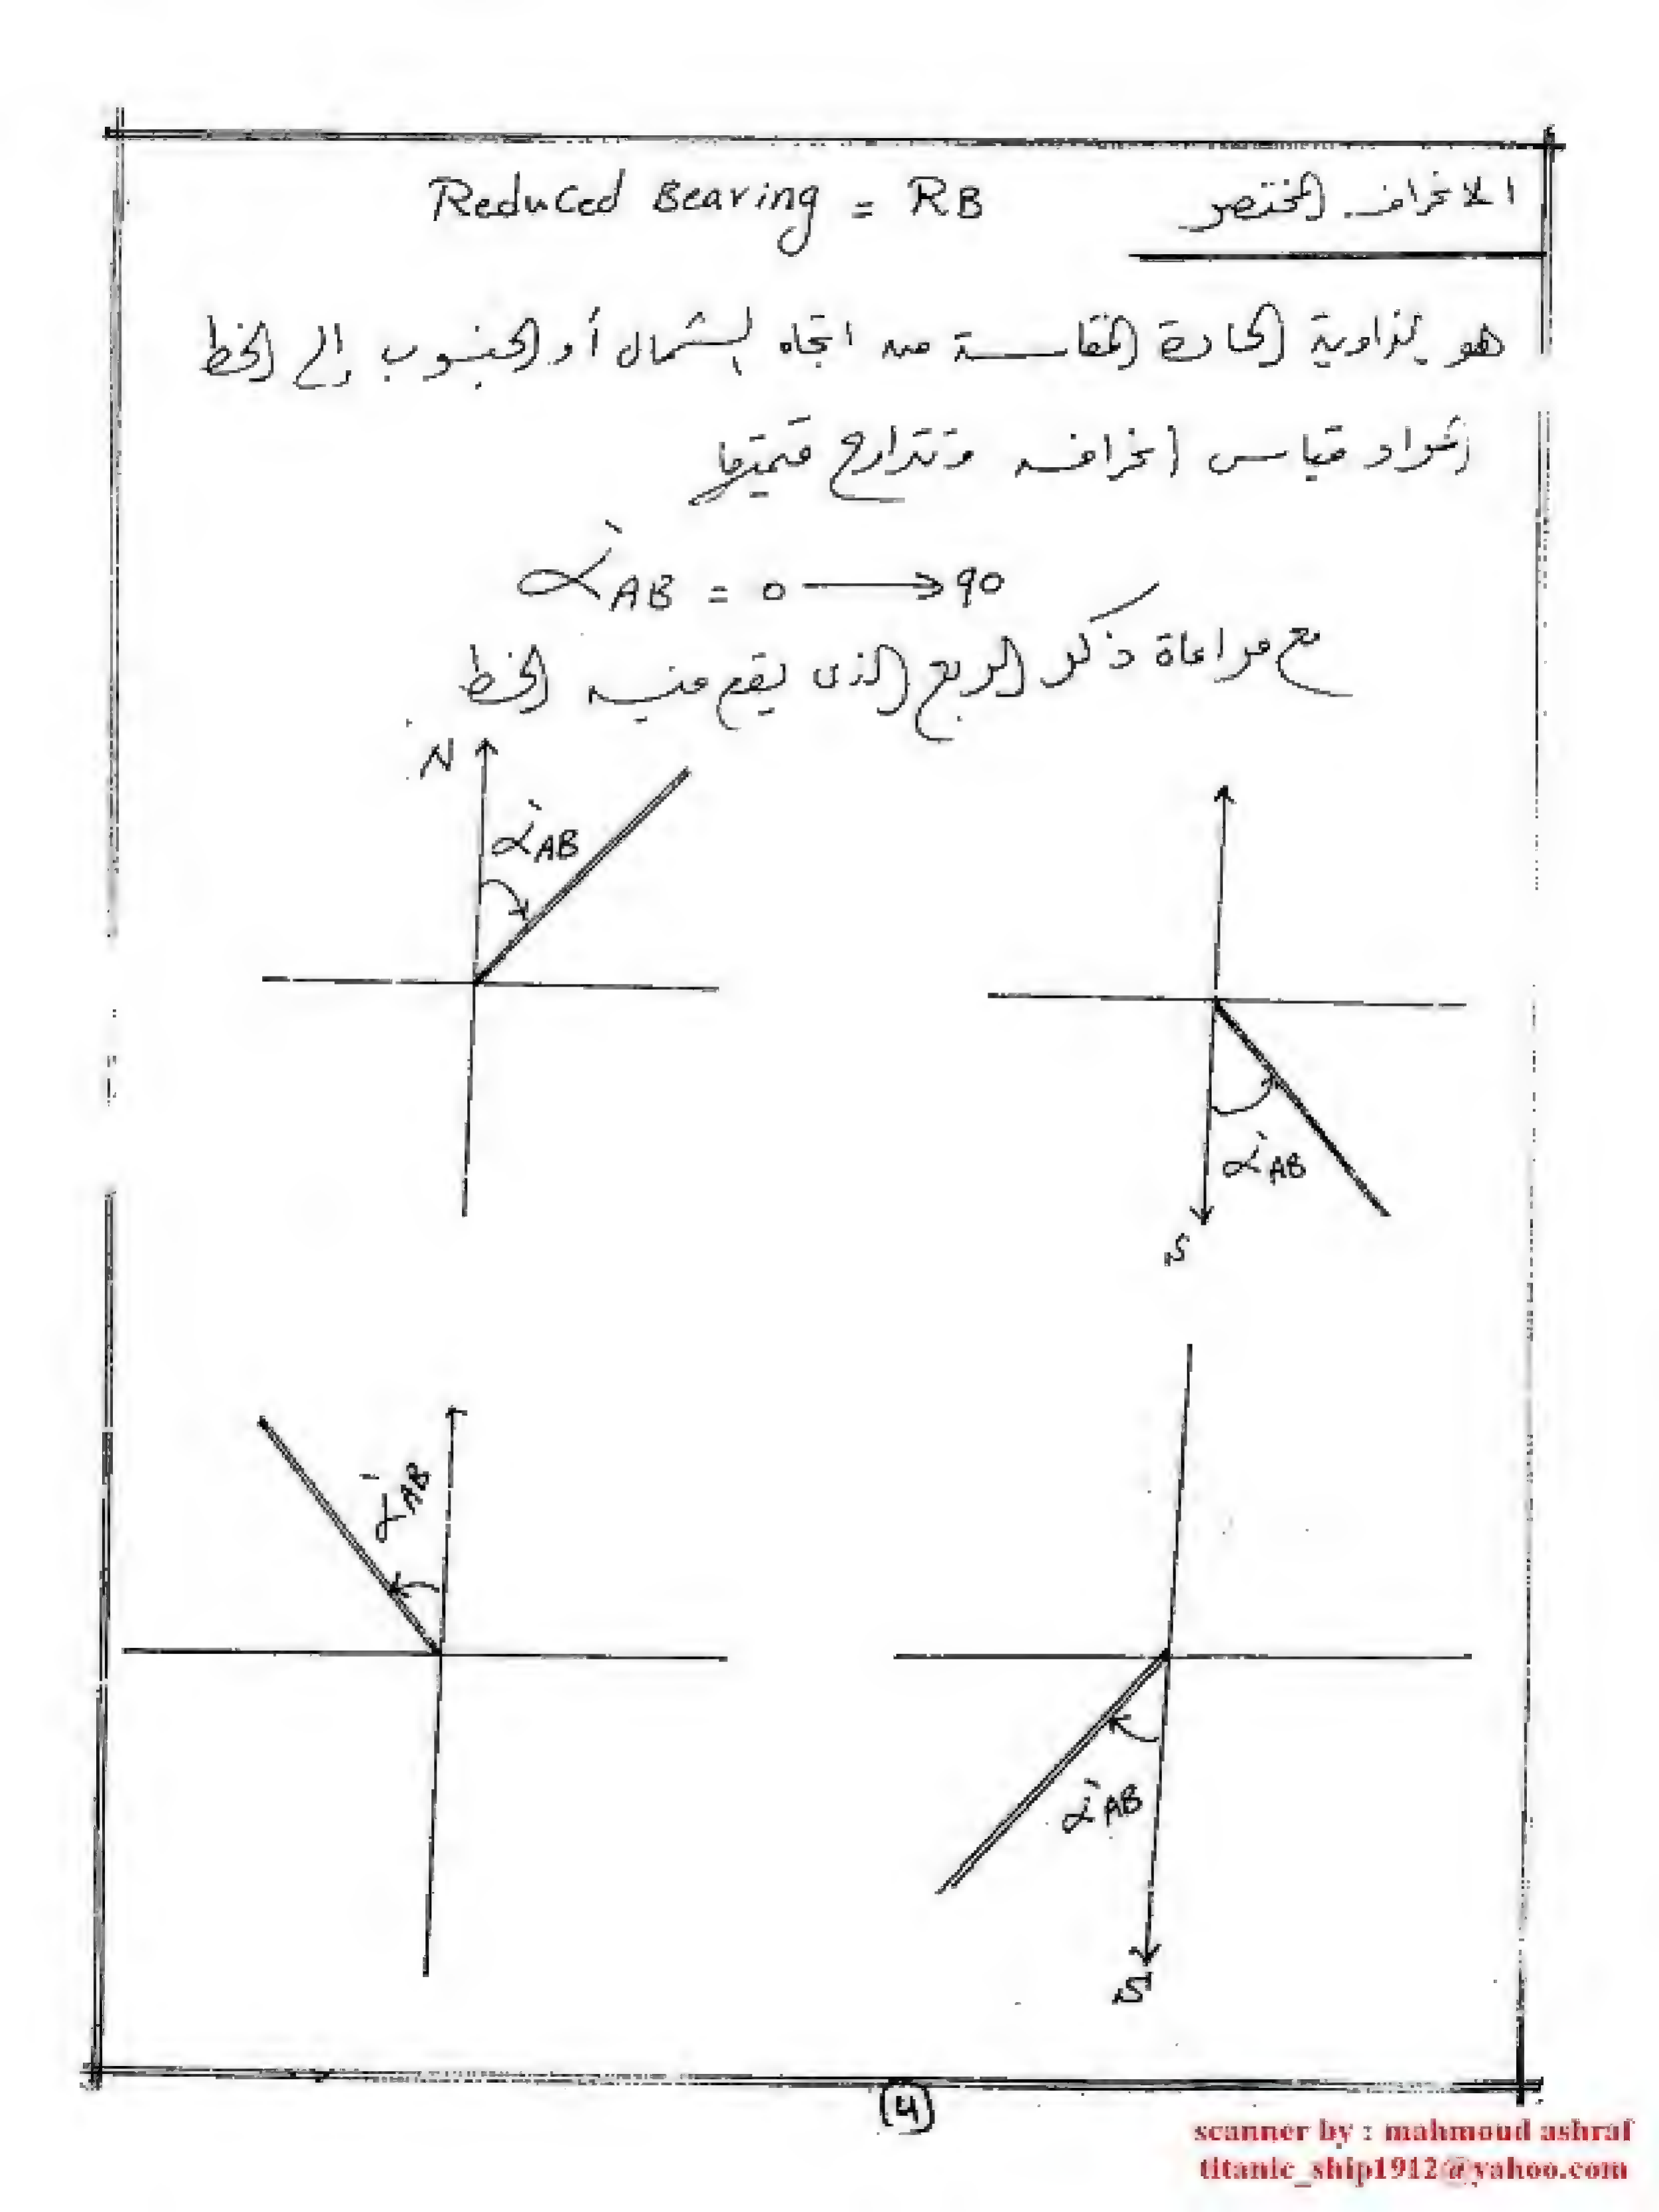 الانحراف المختصر Reduced Bearing = RB
هو الزاوية الحادة المقاسة من اتجاه الشمال أو الجنوب إلى الخط
المراد قياس انحرافه وتتراوح قيمتها
ὰAB = 0 → 90
مع مراعاة ذكر الربع الذى يقع فيه الخط
N
ὰAB
ὰAB
S
ὰAB
ὰAB
S
(4)
scanner by : mahmoud ashraf
titanic_ship1912@yahoo.com